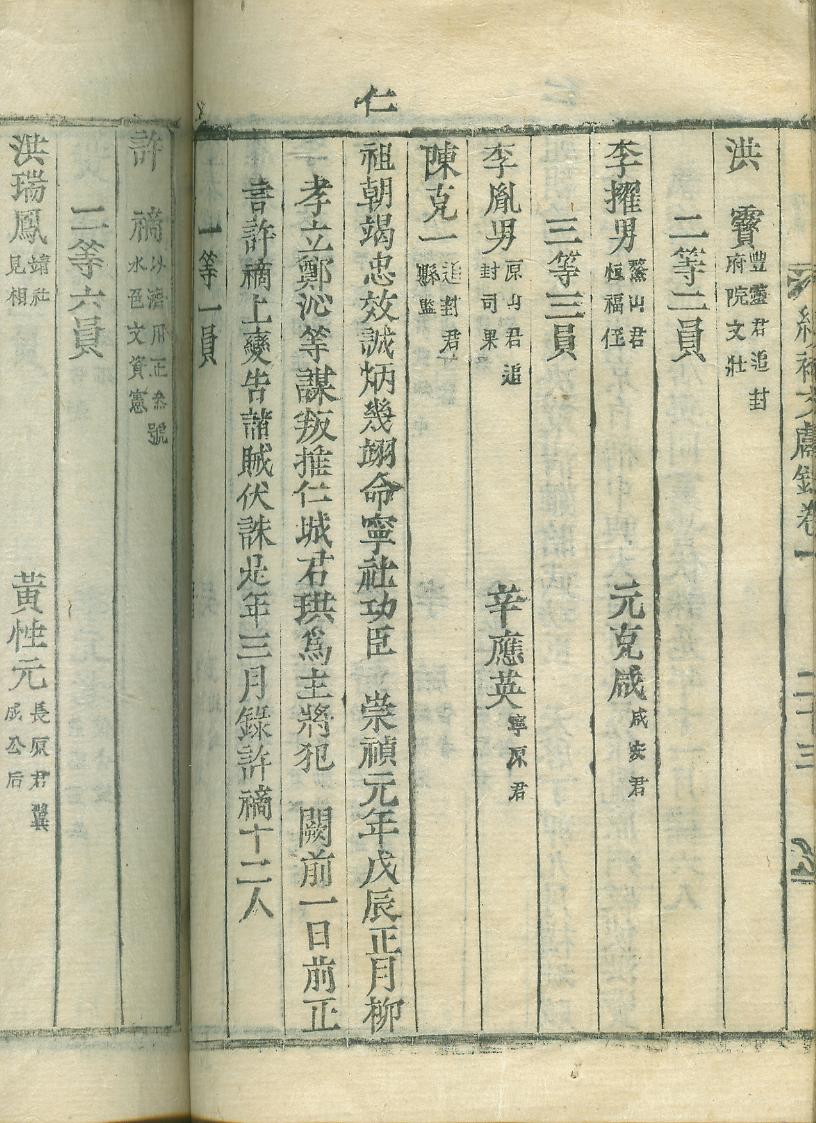 補文獻錄卷一 二十三
洪 寶 豐寧君追封府院文壯
二等二員
李擢男 鰲山君恒福侄 元克咸 咸安君
三等三員
李胤男 原山君追封司果 辛應英 寧原君
陳克一 追封君縣監
仁
祖朝竭忠效誠炳幾翊命寧社功臣 崇禎元年戊辰正月柳
孝立鄭沁等謀叛推仁城君珙爲主將犯 闕前一日前正
言許禠上變告諸賊伏誅是年三月錄許禠十二人
一等一員
許 禠 以濟用正參號水色文資憲
二等六員
洪瑞鳳 靖社見相 黃性元 長原君翼成公后